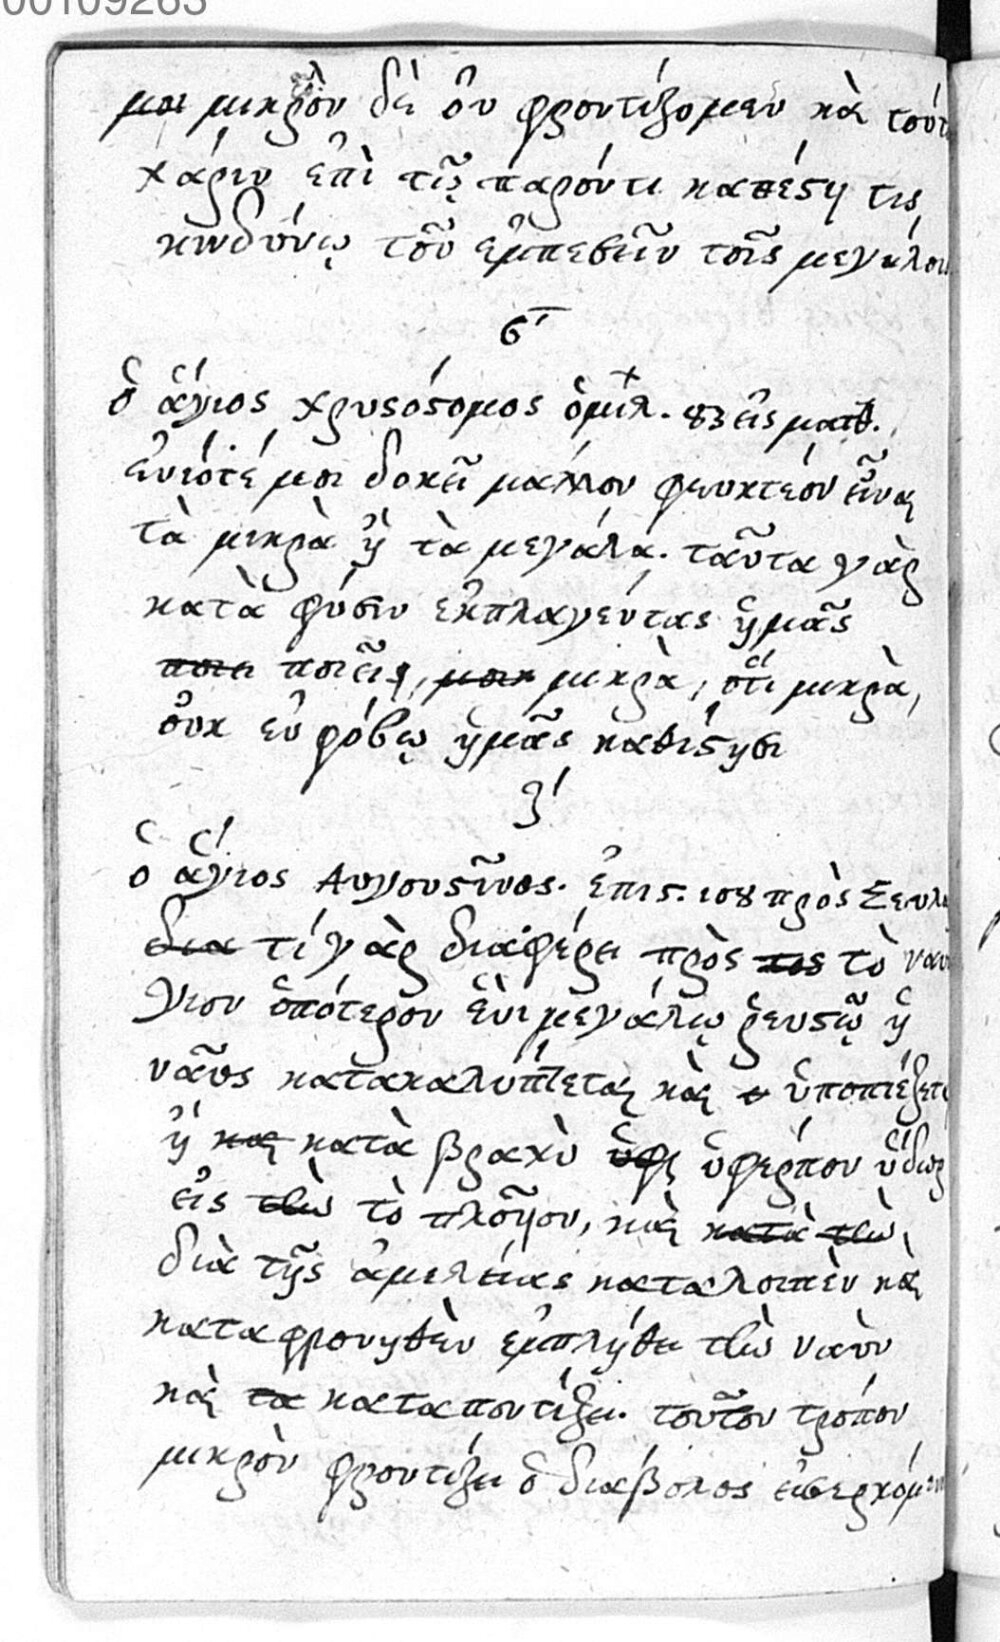 00109263
μοι μικρὸν δὲ ὂν φροντίζομεν καὶ τούτ
χάριν ἐπὶ τῷ παρόντι καθέστη τις
κινδύνῳ τοῦ ἐμπεσεῖν τοῖς μεγάλοι
ϛʹ
ὁ ἅγιος χρυσόστομος ὁμιλ. πζ εἰς ματθ.
ἐνιότέ μοι δοκεῖ μᾶλλον φευκτέον εἶναι
τὰ μικρὰ ἢ τὰ μεγάλα. ταῦτα γὰρ
κατὰ φύσιν ἐκπλαγέντας ἡμᾶς
ποιεῖ ποιεῖ, μικρὰ, ὅτι μικρὰ,
οὐκ ἐν φόβῳ ἡμᾶς καθίστησι
ζʹ
ὁ ἅγιος Αὐγουστῖνος. ἐπιστ. ιου πρὸς Σευλ
δια τί γὰρ διαφέρει πρὸς τος τὸ ναυ
γιον ὁπότερον ἑνὶ μεγάλῳ ῥευστῷ ἡ
ναῦς κατακαλύπτεται καὶ ὑποπιέζετ
ἢ και κατὰ βραχὺ ὑφε ὑφερπον ὕδωρ
εἰς τὴν τὸ πλοῖον, καὶ κατὰ τὴν
διὰ τῆς ἀμελείας καταλοιπὲν καὶ
καταφρονηθὲν ἐμπλήθει τὴν ναῦν
καὶ τα καταποντίζει. τοῦτον τρόπον
μικρὸν φροντίζει ὁ διάβολος εἰσερχόμεν